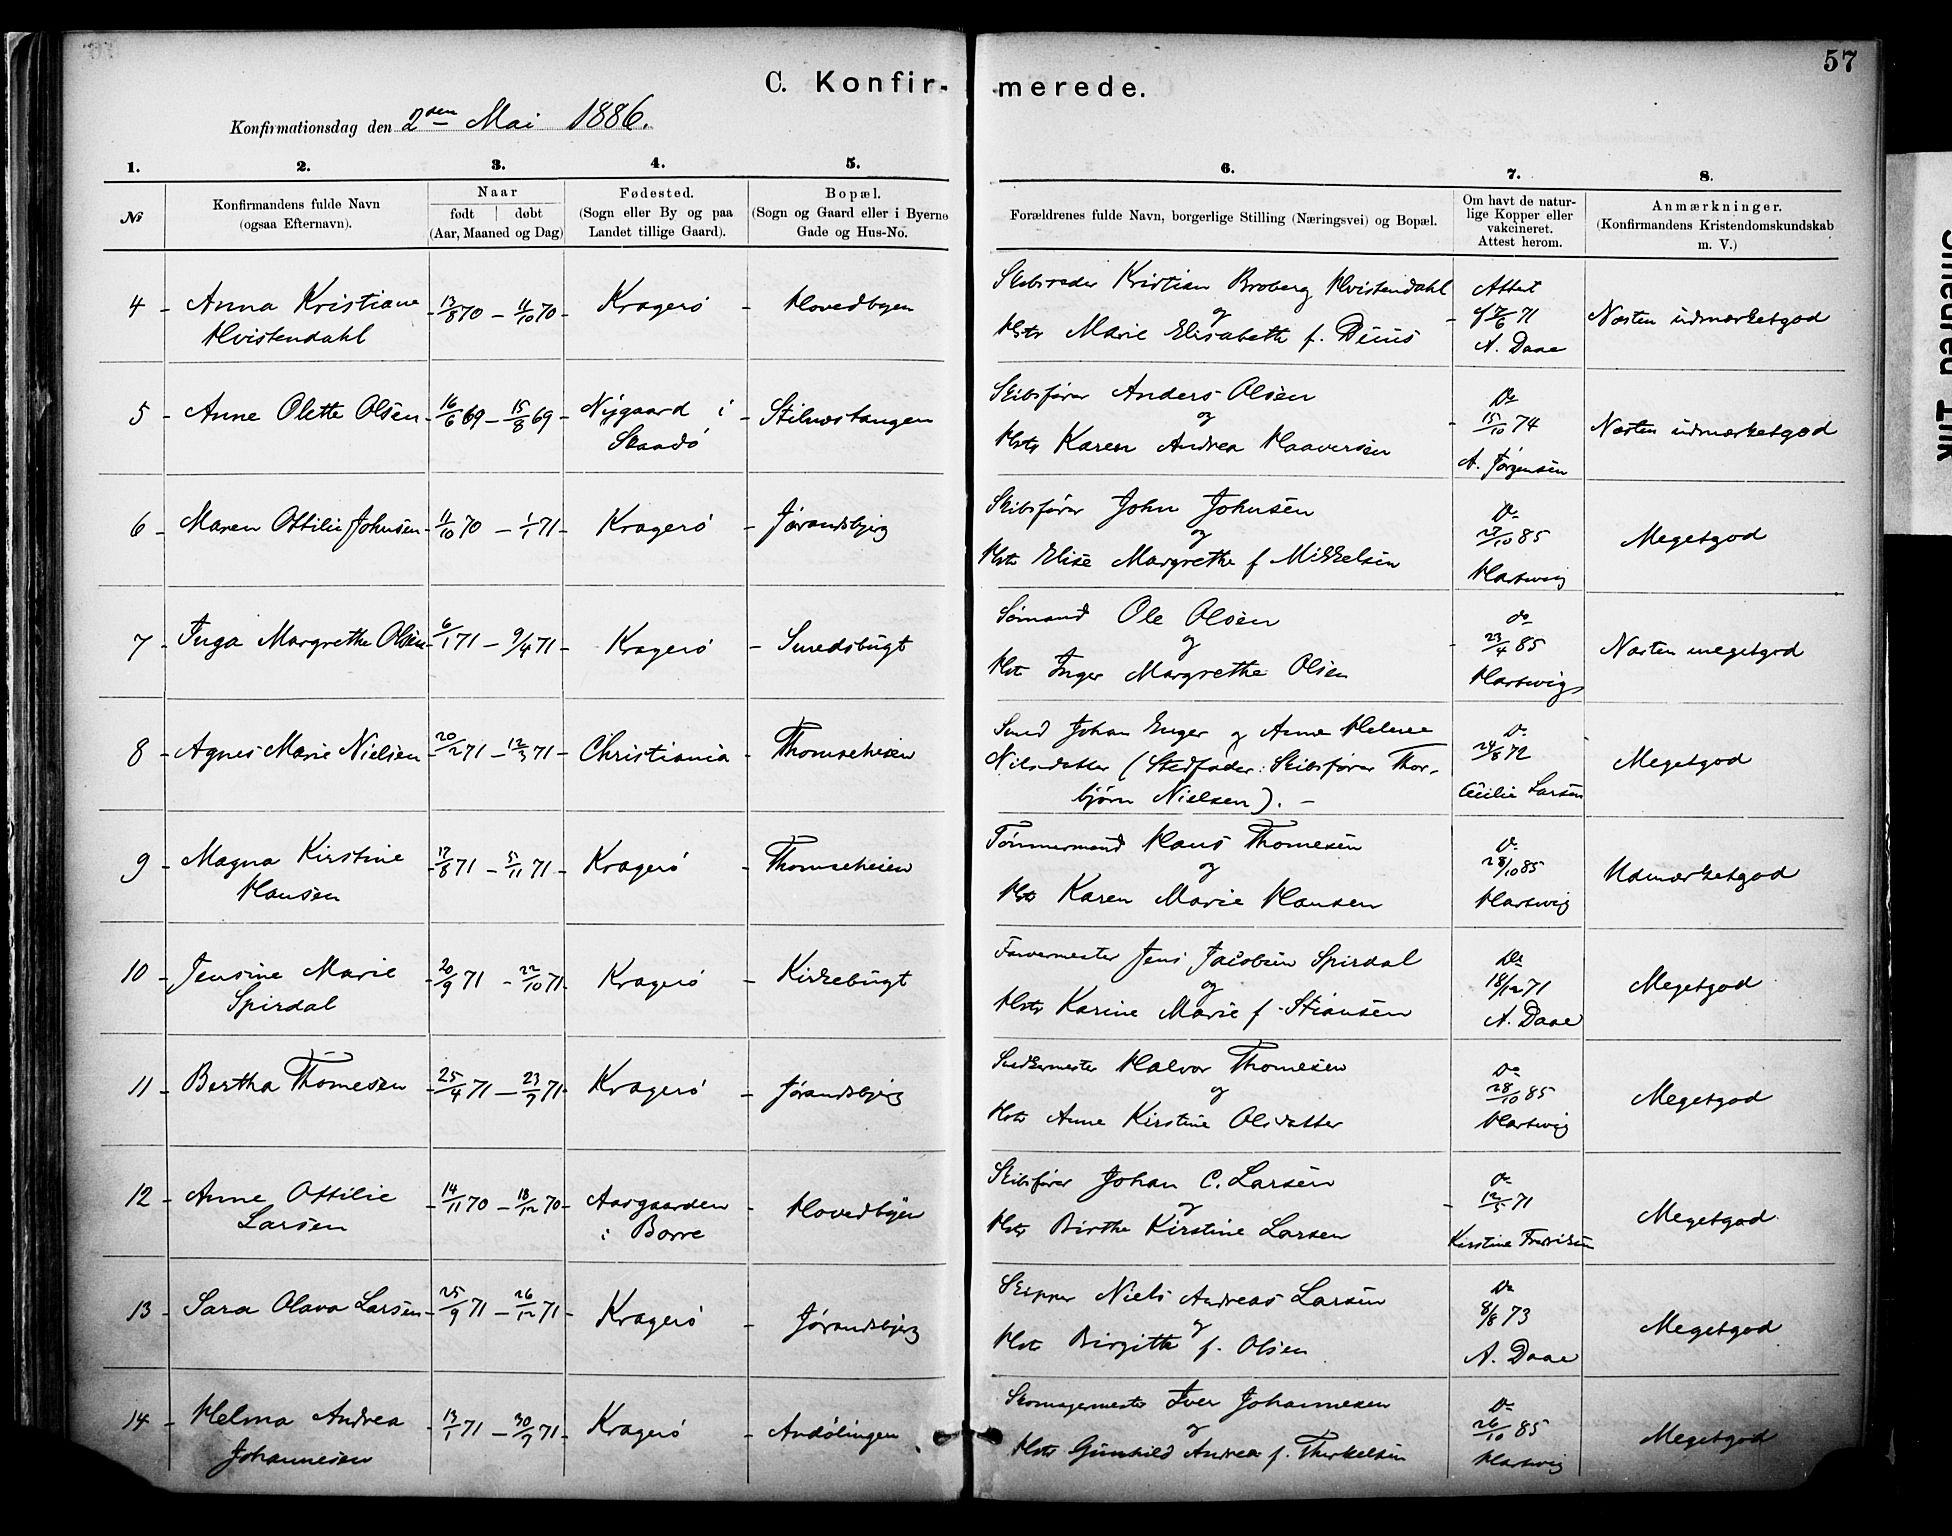 57
C. Konfir- merede.
Konfirmationsdag den 2den Mai 1886.
1. 2. 3. 4. 5. 6. 7. 8.
No
Konfirmandens fulde Navn
(ogsaa Efternavn).
Naar
født | døbt
(Aar, Maaned og Dag)
Fødested.
(Sogn eller By og paa
Landet tillige Gaard).
Bopæl.
(Sogn og Gaard eller i Byerne
Gade og Hus-No.
Forældrenes fulde Navn, borgerlige Stilling (Næringsvei) og Bopæl.
Om havt de natur-
lige Kopper eller
vakcineret.
Attest herom.
Anmærkninger.
(Konfirmandens Kristendomskundskab
m. V.)
4 - Anna Kristiane
Hvistendahl
13/8 70 - 11/10 70
Kragerø
Hovedbyen
Skibsreder Kristian Broberg Hvistendahl
og
Hstr Marie Elisabeth f. Duus
Attest
71
A. Daae
Næsten udmærketgod
5 - Anne Olette Olsen
16/6 69 - 15/8 69
Nygaard i
Skaadø
Stilnæstangen
Skibsfører Anders Olsen
og
Hstr Karen Andrea Haaversen
Do
15/10 74
A. Jørgensen
Næsten udmærketgod
6 - Maren Ottilie Johnsen
11/10 70 - 1/1 71
Kragerø
Jørandsbjerg
Skibsfører John Johnsen
og
Hstr Elise Margrethe f Mikkelsen
Do
27/10 85
Hartwig
Megetgod
7 - Inga Margrethe Olsen
6/1 71 - 9/4 71
Kragerø
Smedsbugt
Sømand Ole Olsen
og
Hstr Inger Margrethe Olsen
do
23/4 85
Hartwig
Næsten megetgod
8 - Agnes Marie Nielsen
20/2 71 - 12/3 71
Christiania
Thomseheien
Smed Johan Enger og Anne Helene
Nilsdatter (Stedfader: Skibsfører Thor-
bjørn Nielsen). -
Do
24/8 72
Cecilie Larsen
Megetgod
9 - Magna Kirstine
Hansen
17/8 71 - 5/11 71
Kragerø
Thomseheien
Tømmermand Hans Thomesen
og
Hstr Karen Marie Hansen
Do
28/10 85
Hartwig
Udmærketgod
10 - Jensine Marie
Spirdal
20/9 71 - 22/10 71
Kragerø
Kirkebugt
Farvermester Jens Jacobsen Spirdal
og
Hstr Karine Marie f. Stiansen
Do
18/12 71
A. Daae
Megetgod
11 - Bertha Thomesen
25/4 71 - 23/7 71
Kragerø
Jørandsbjerg
Snedkermester Halvor Thomesen
og
Hstr Anne Kirstine Olsdatter
Do
28/10 85
Hartwig
Megetgod
12 - Anne Ottilie
Larsen
14/11 70 - 18/12 70
Aasgaarden
i Borre
Hovedbyen
Skibsfører Johan C. Larsen
og
Hstr Birthe Kirstine Larsen
Do
12/5 71
Kirstine Fredriksen
Megetgod
13 - Sara Olava Larsen
25/9 71 - 26/12 71
Kragerø
Jørandsbjerg
Skipper Niels Andreas Larsen
og
Hstr Birgitte f. Olsen
Do
8/8 73
A. Daae
Megetgod
14 - Helma Andrea
Johannesen
13/1 71 - 30/7 71
Kragerø
Andølingen
Skomagermester Iver Johannesen
og
Hstr Gunhild Andrea f. Therkelsen
Do
26/10 85
Hartwig
Megetgod